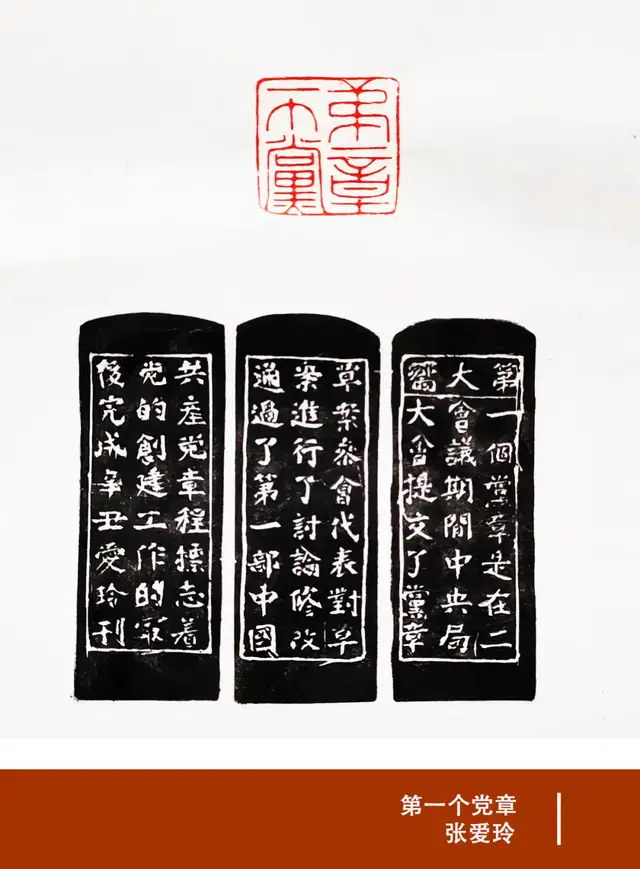 弟一个黨章
第一個黨章是在二
大會議期間中央局
嚮大會提交了黨章
草案參會代表對草
案進行了討論修改
通過了第一部中國
共產党章程標志着
党的創建工作的最
後完成辛丑愛玲刊
第一个党章
张爱玲